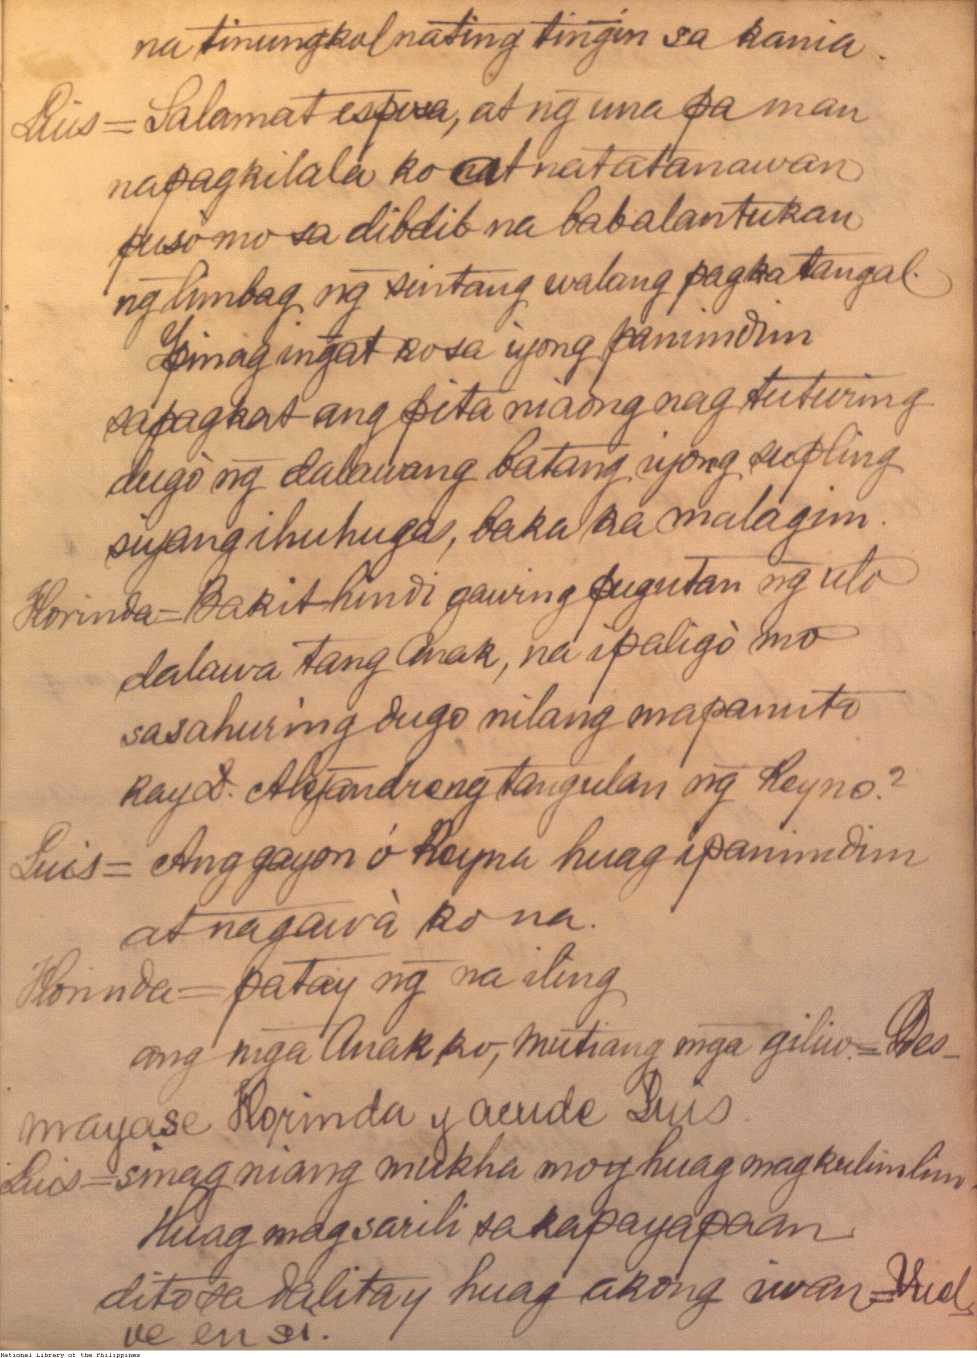 na tinungkol nating tingin sa kania.
Luis = Salamat esposa, at ng̃ una pa man
napagkilala ko at natatanawan
pusò mo sa dibdib na babalantukan
ng̃ limbag ng̃ sintang walang pagkatangal.
Ipinag ing̃at ko sa iyong panimdim
sapagkat ang pita niaong nag tuturing
dugò ng̃ dalawang batang iyong supling
siyang ihuhugas, baka ka malagim.
Florinda = Bakit hindi gawing pugutan ng̃ ulo
dalawa tang Anak, na ipaligò mo
sasahuring dugo nilang mapanuto
kay D. Alejandrong tangulan ng̃ Reyno.?
Luis = Ang gayon ó Reyna huag ipanimdim
at nagawà ko na.
Florinda = patay ng̃ na iling
ang mg̃a Anak ko, mutiang mg̃a giliw. = Des-
mayase Florinda y acude Luis.
Luis = sinag niang mukha moy huag magkulimlim.
Huag mag sarili sa kapayapaan
dito sa dalitay huag akong iwan = Vuel
ve en si.
National Library of the Philippines